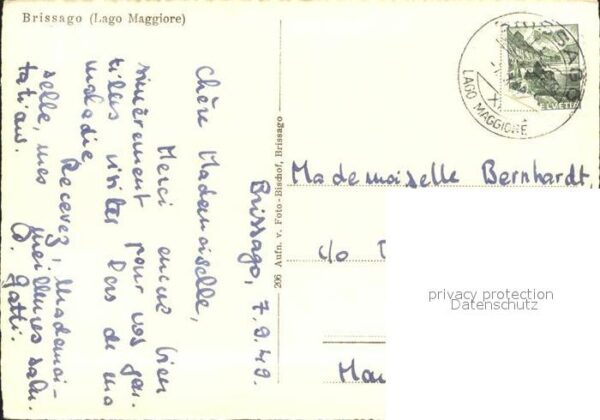 Brissago (Lago Maggiore)
Brissago, 7.9.49.
Chère Mademoiselle,
Merci encore bien
sincèrement pour vos gen-
tilles visites lors de ma
maladie.
Recevez, Mademoi-
selle, mes meilleures salu-
tations.
G. Gatti.
206 Aufn. v. Foto-Bischof, Brissago
SSAGO
LAGO MAGGIORE
HELVETIA
Mademoiselle Bernhardt,
c/o
privacy protection
Datenschutz